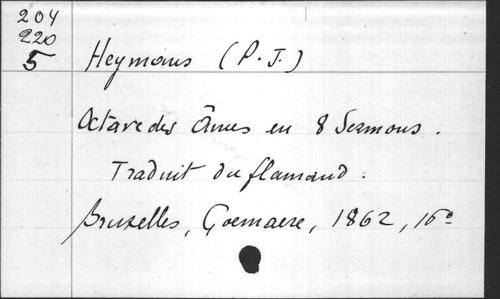 204
220
5
Heymans (P. J.)
Octave des Âmes en 8 Sermons.
Traduit du flamand.
Bruxelles, Goemaere, 1862, 16º